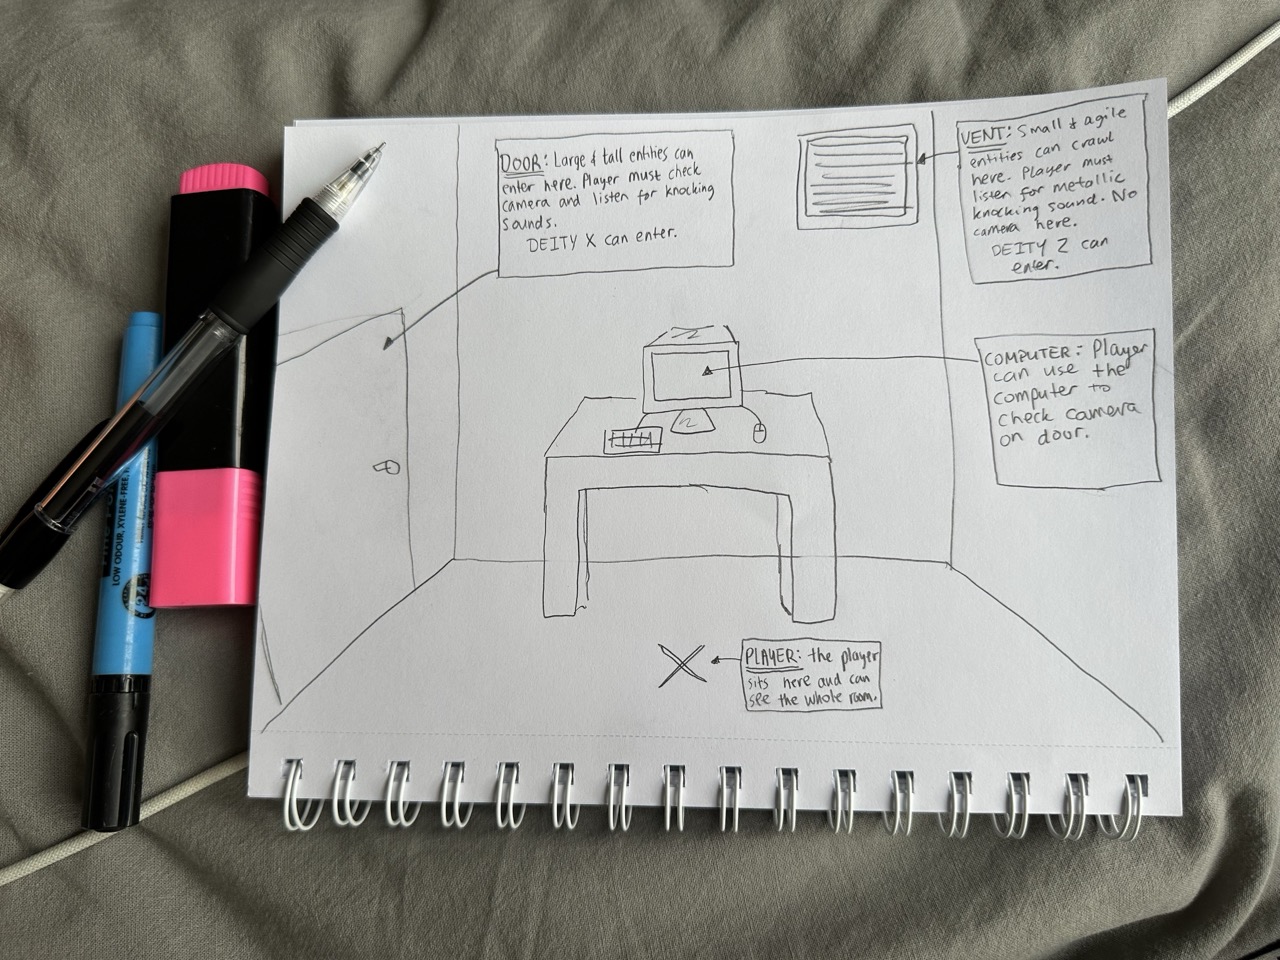 DOOR: Large & tall entities can
enter here. Player must check
camera and listen for knocking
sounds.
DEITY X can enter.
VENT: Small & agile
entities can crawl
here. Player must
listen for metallic
knocking sound. No
camera here.
DEITY Z can
enter.
COMPUTER: Player
can use the
computer to
check camera
on door.
PLAYER: the player
sits here and can
see the whole room.
LOW ODOUR, XYLENE-FREE,